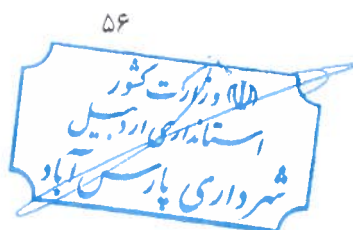 ۵۶
وزارت کشور
استانداری اردبیل
شهرداری پارس آباد